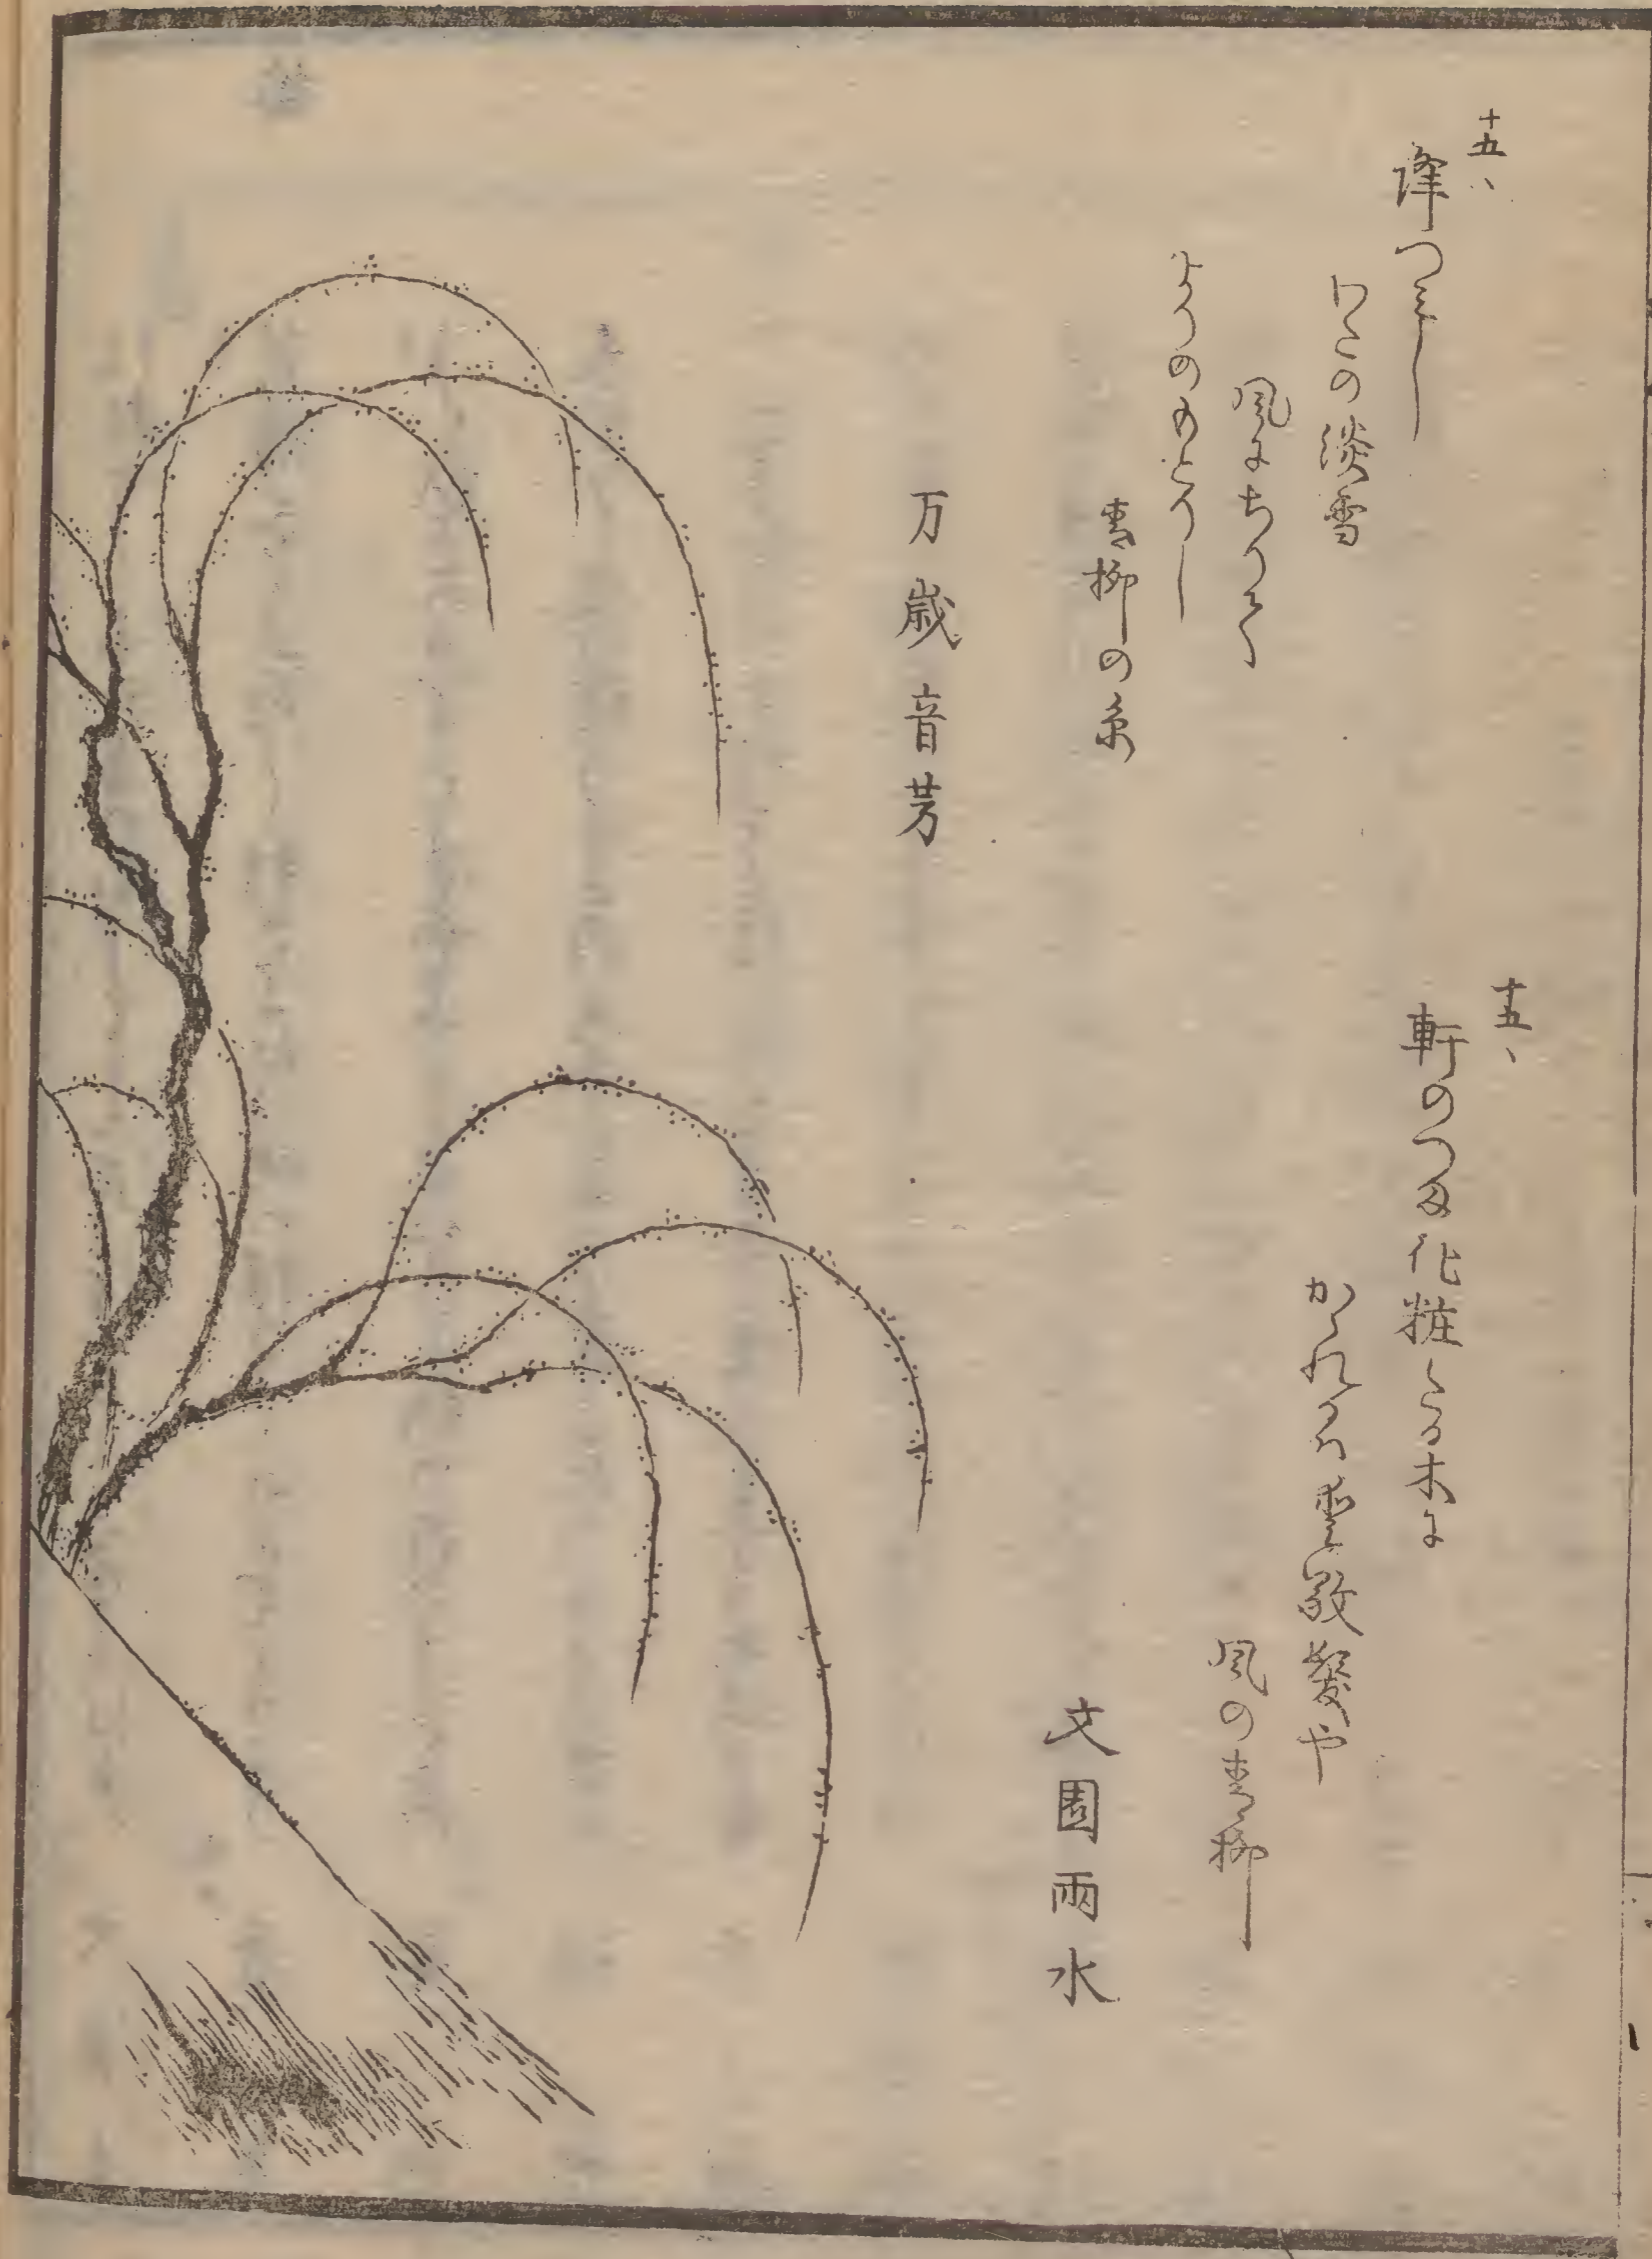 十五
降つみし
わたの淡雪
風にちりて
よりのもとりし
青柳の糸
万歳音芳
十五
軒のつま化粧たる木に
かゝれるは散髪や
風の青柳
文園雨水